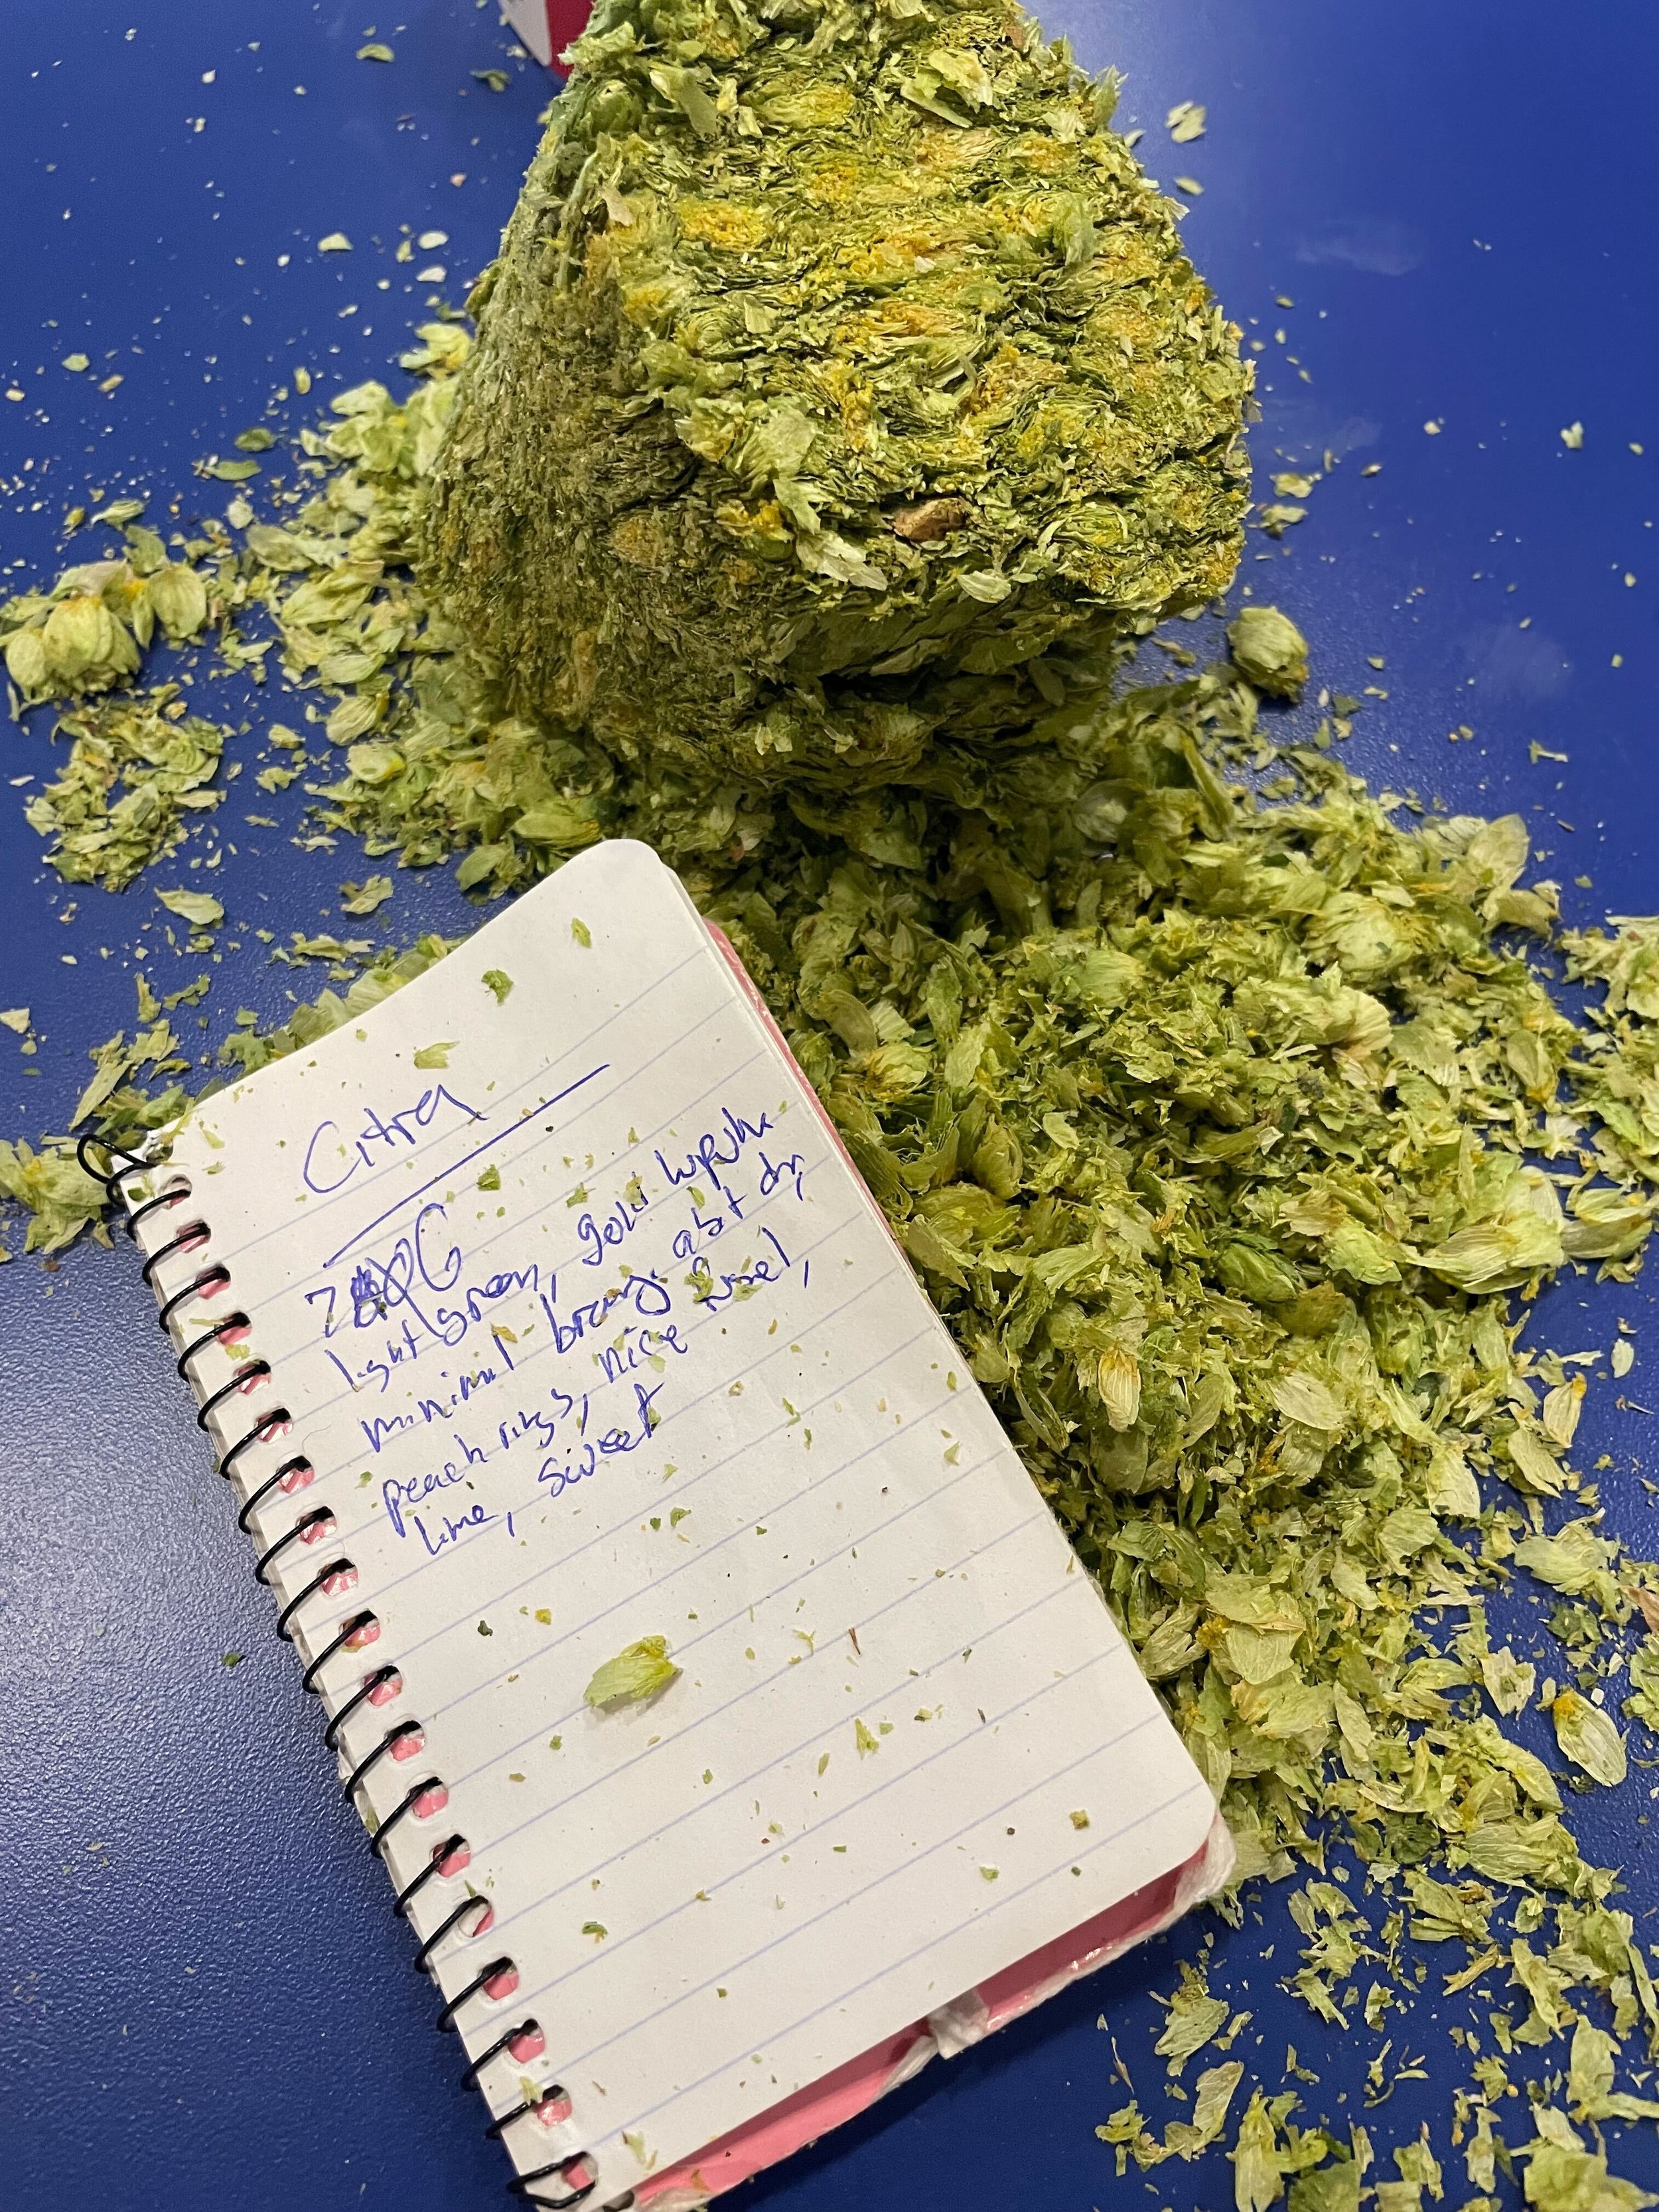 Citra
light green, gold lupulin
minimal brown, a bit dry
peach rings, nice
lime, sweet